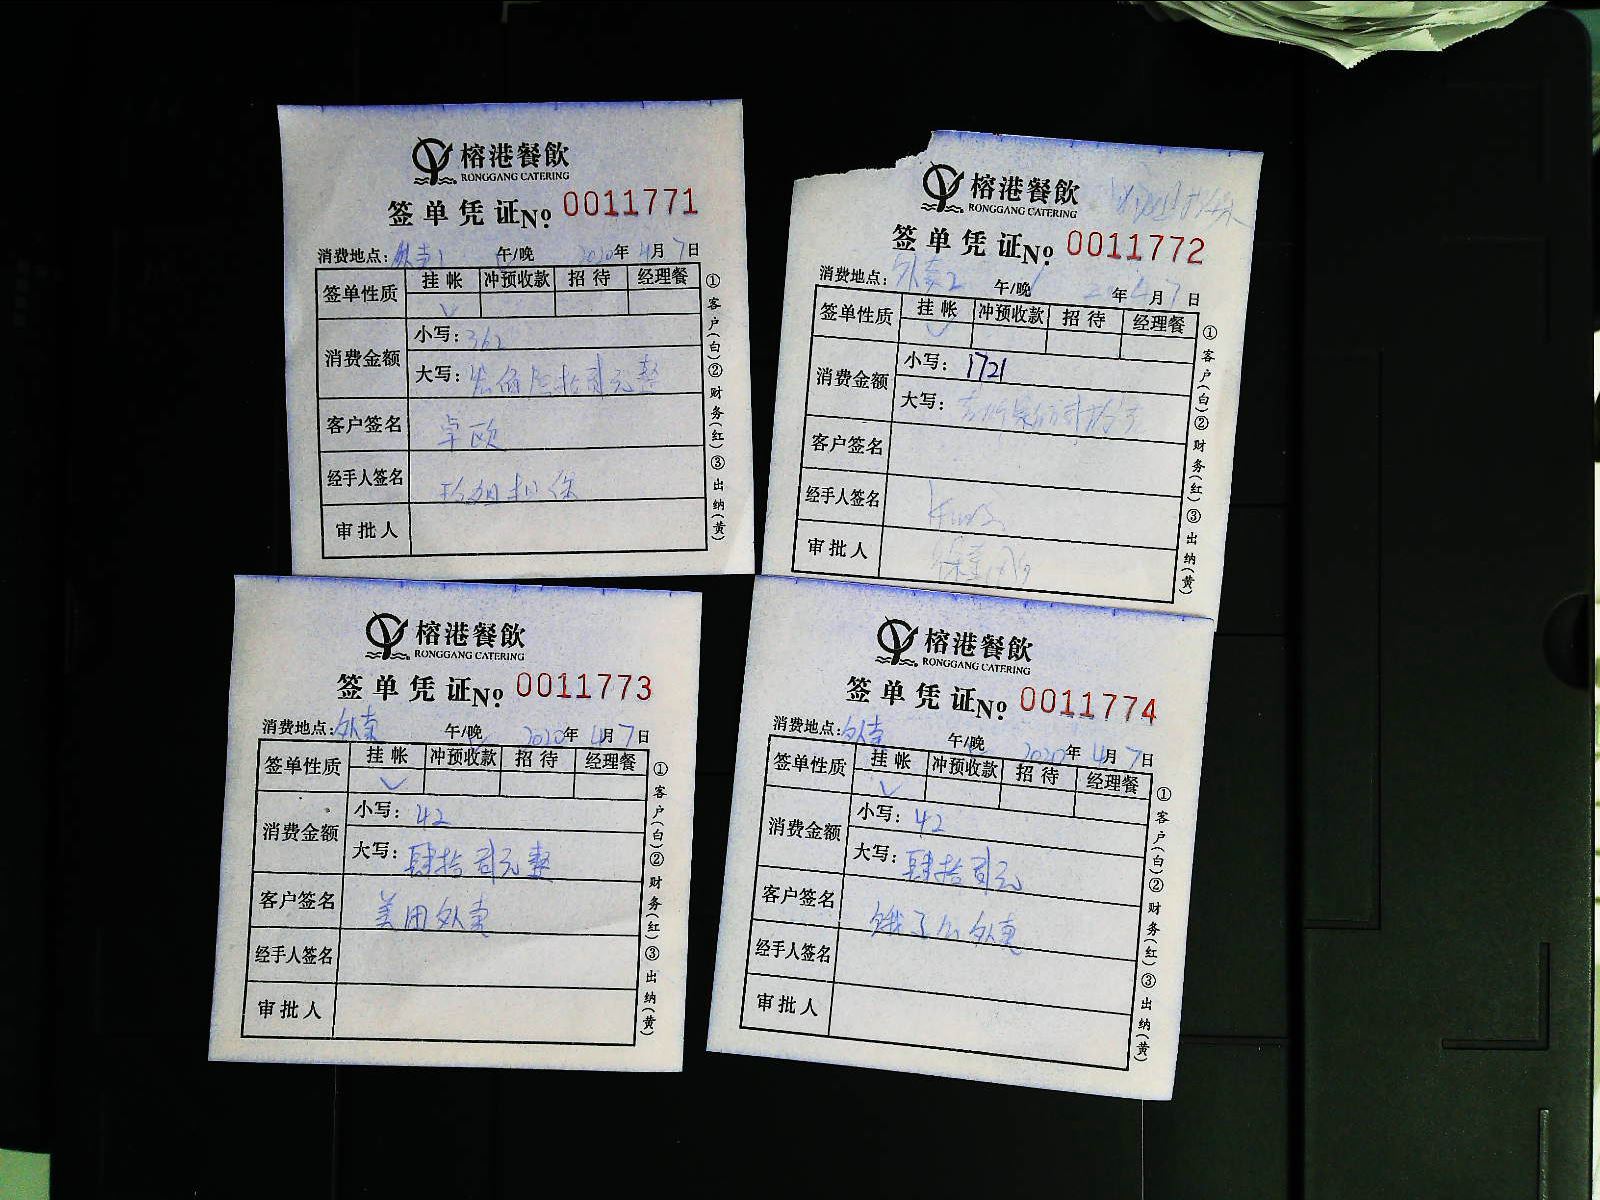 榕港餐飲
RONGGANG CATERING
签单凭证 No. 0011771
消费地点: 外卖1 午/晚 2020年4月7日
签单性质 挂帐 冲预收款 招待 经理餐
消费金额 小写: 362
大写: 叁佰陆拾贰元整
客户签名 卓欧
经手人签名 担保
审批人
①客户(白)②财务(红)③出纳(黄)
榕港餐飲
RONGGANG CATERING
签单凭证 No. 0011772
消费地点: 外卖2 午/晚 20年4月7日
签单性质 挂帐 冲预收款 招待 经理餐
消费金额 小写: 1721
大写:
客户签名
经手人签名
审批人
①客户(白)②财务(红)③出纳(黄)
榕港餐飲
RONGGANG CATERING
签单凭证 No. 0011773
消费地点: 外卖 午/晚 2020年4月7日
签单性质 挂帐 冲预收款 招待 经理餐
消费金额 小写: 42
大写: 肆拾贰元整
客户签名 美团外卖
经手人签名
审批人
①客户(白)②财务(红)③出纳(黄)
榕港餐飲
RONGGANG CATERING
签单凭证 No. 0011774
消费地点: 外卖 午/晚 2020年4月7日
签单性质 挂帐 冲预收款 招待 经理餐
消费金额 小写: 42
大写: 肆拾贰元
客户签名 饿了么外卖
经手人签名
审批人
①客户(白)②财务(红)③出纳(黄)